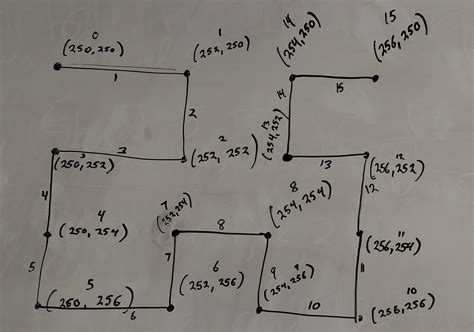 0
(250, 250)
1
(252, 250)
14
(254, 250)
15
(256, 250)
1
2
14
15
3
3
(250, 252)
2
(252, 252)
13
(254, 252)
13
12
(256, 252)
12
4
4
(250, 254)
7
(252, 254)
8
8
(254, 254)
11
(256, 254)
11
5
5
(250, 256)
6
7
6
(252, 256)
9
9
(254, 256)
10
10
(256, 256)